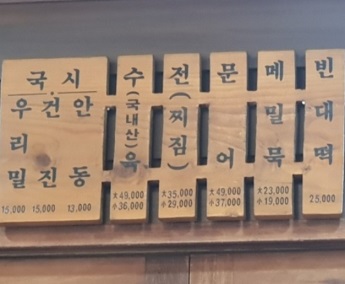 국시
우리밀
15,000
건진
15,000
안동
13,000
수(국내산)육
大49,000
小36,000
전(찌짐)
大35,000
小29,000
문어
大49,000
小37,000
메밀묵
大23,000
小19,000
빈대떡
25,000